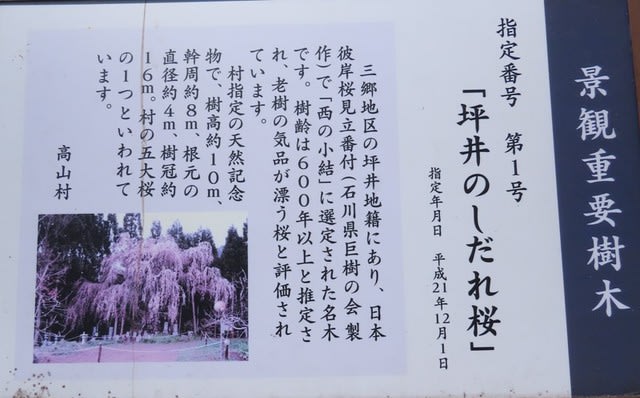 景観重要樹木
指定番号　第1号
「坪井のしだれ桜」
指定年月日　平成21年12月1日
三郷地区の坪井地籍にあり、日本
彼岸桜見立番付(石川県巨樹の会 製
作)で「西の小結」に選定された名木
です。樹齢は600年以上と推定さ
れ、老樹の気品が漂う桜と評価され
ています。
村指定の天然記念
物で、樹高約10m、
幹周約8m、根元の
直径約4m、樹冠約
16m。村の五大桜
の1つといわれて
います。
高山村